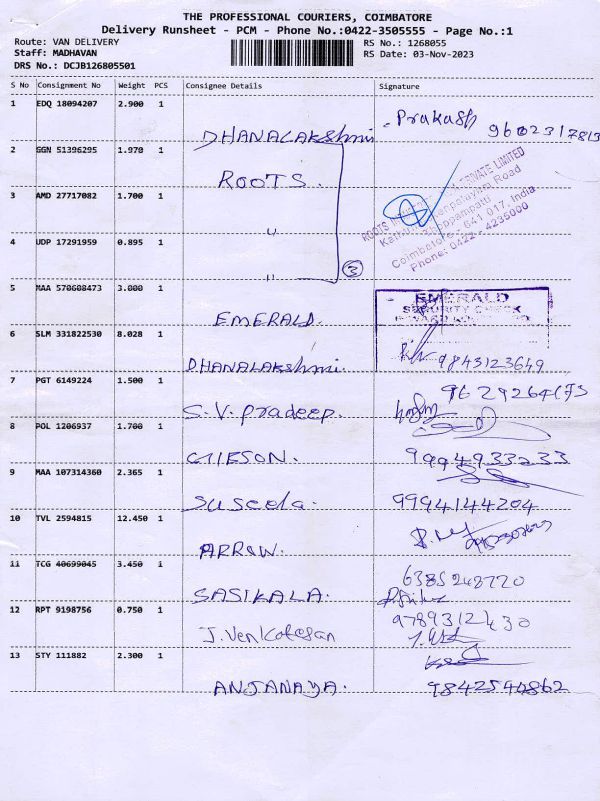 THE PROFESSIONAL COURIERS, COIMBATORE
Delivery Runsheet - PCM - Phone No.:0422-3505555 - Page No.:1
Route: VAN DELIVERY RS No.: 1268055
Staff: MADHAVAN RS Date: 03-Nov-2023
DRS No.: DCJB126805501
S No Consignment No Weight PCS Consignee Details Signature
1 EDQ 18094207 2.900 1 DHANALAKShmi - Prakash 9602317813
2 GGN 51396295 1.970 1 ROOTS.
ROOTS PRIVATE LIMITED
Road
Thoppampatti
Coimbatore - 641 017, India
Phone: 0422 - 4235000
3 AMD 27717082 1.700 1 "
4 UDP 17291959 0.895 1 "
3
5 MAA 570608473 3.000 1 EMERALD.
EMERALD
SECURITY CHECK
6 SLM 331822530 8.028 1 DHANALAKShmi. 9843123649
7 PGT 6149224 1.500 1 S.V. Pradeep.
8 POL 1206937 1.700 1 9994933233
9 MAA 107314360 2.365 1 Suseela. 9994144204
10 TVL 2594815 12.450 1 ARROW.
11 TCG 40699045 3.450 1 SASIKALA. 6385248720
12 RPT 9198756 0.750 1 J. Venkatesan 9789312430
13 STY 111882 2.300 1 ANJANAYA. 9842544862